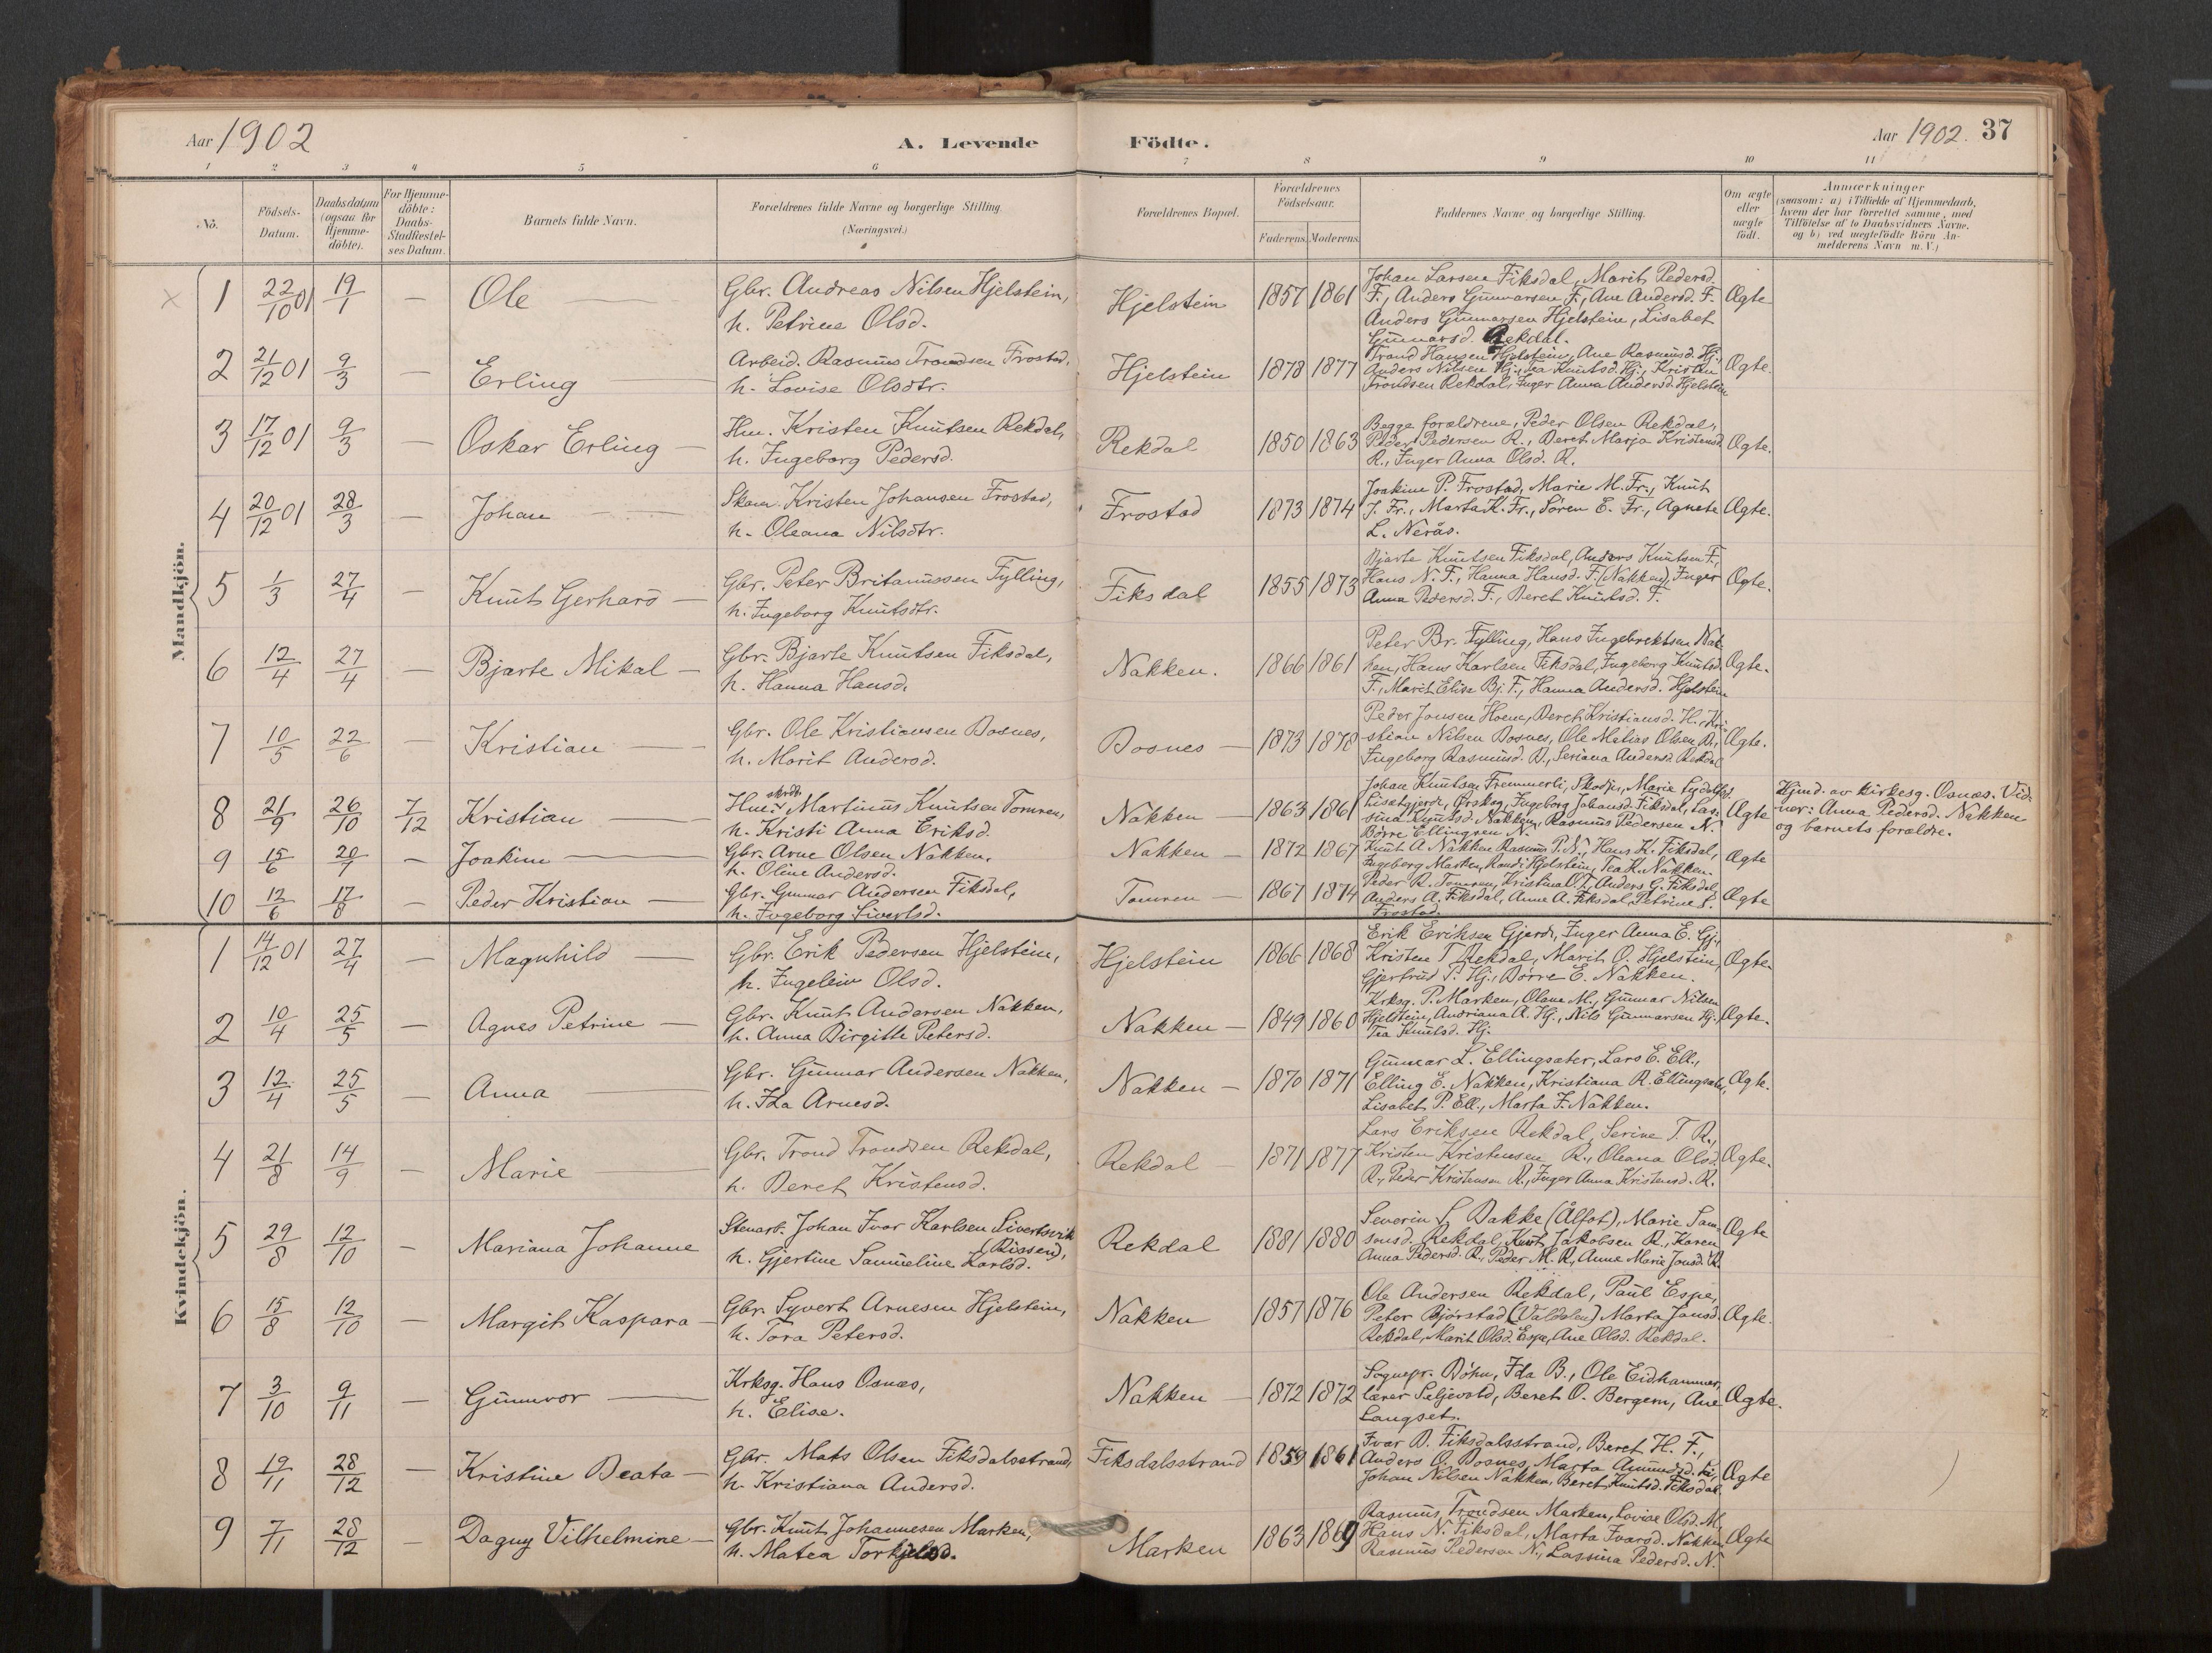 Aar 1902 A. Levende Födte. Aar 1902. 37
1 2 3 4 5 6 7 8 9 10 11
No. Födsels-Datum. Daabsdatum (ogsaa for Hjemme-döbte). For Hjemme-döbte: Daabs-Stadfæstel-ses Datum. Barnets fulde Navn. Forældrenes fulde Navne og borgerlige Stilling. (Næringsvei.) Forældrenes Bopæl. Forældrenes Födselsaar. Faderens. Moderens. Faddernes Navne og borgerlige Stilling. Om ægte eller uægte födt. Anmærkninger (saasom: a) i Tilfælde af Hjemmedaab, hvem der har forrettet samme, med Tilföielse af to Daabsvidners Navne, og b) ved uægtefödte Börn An-melderens Navn m. V.)
Mandkjön.
× 1 22/10 01 19/1 — Ole — Gbr. Andreas Nilsen Hjelstein,
h. Petrine Olsd. Hjelstein 1857 1861 Johan Larsen Fiksdal, Marit Pedersd.
F., Anders Gunnarsen F., Ane Andersd. F.
Anders Gunnarsen Hjelstein, Lisabet
Gunnarsd. Rekdal. Ægte
2 21/12 01 9/3 — Erling — Arbeid. Rasmus Trondsen Frostad,
h. Lovise Olsdtr. Hjelstein 1878 1877 Trond Hansen Hjelstein, Ane Rasmusd. Hj.,
Anders Nilsen Hj., Tea Knutsd. Hj., Kristen
Trondsen Rekdal, Inger Anna Andersd. Hjelstein Ægte.
3 17/12 01 9/3 — Oskar Erling — Hm. Kristen Knutsen Rekdal,
h. Ingeborg Pedersd. Rekdal 1850 1863 Begge forældrene, Peder Olsen Rekdal,
Peder Pedersen R., Beret Marja Kristensd.
R., Inger Anna Olsd. R. Ægte.
4 20/12 01 28/3 — Johan — Skom. Kristen Johansen Frostad,
h. Oleana Nilsdtr. Frostad 1873 1874 Joakim P. Frostad, Marie M. Fr., Knut
J. Fr., Marta K. Fr., Sören E. Fr., Agnete
L. Nerås. Ægte.
5 1/3 27/4 — Knut Gerhard — Gbr. Peter Britanussen Fylling,
h. Ingeborg Knutsdtr. Fiksdal 1855 1873 Bjarte Knutsen Fiksdal, Anders Knutsen F.,
Hans N. F., Hanna Hansd. F. (Nakken), Inger
Anna Pedersd. F., Beret Knutsd. F. Ægte.
6 12/4 27/4 — Bjarte Mikal — Gbr. Bjarte Knutsen Fiksdal,
h. Hanna Hansd. Nakken. 1866 1861 Peter Br. Fylling, Hans Ingebrektsen Nak-
ken, Hans Karlsen Fiksdal, Ingeborg Knutsd.
F., Marit Elise Bj. F., Hanna Andersd. Hjelstein Ægte.
7 10/5 22/6 — Kristian — Gbr. Ole Kristiansen Bosnes,
h. Marit Andersd. Bosnes — 1873 1878 Peder Jonsen Hoem, Beret Kristiansd. H., Kri-
stian Nilsen Bosnes, Ole Matias Olsen B.,
Ingeborg Rasmusd. B., Seriana Andersd. Rekdal Ægte.
8 21/9 26/10 7/12 Kristian — Hm. skrdr. Martinus Knutsen Tomren,
h. Kristi Anna Eriksd. Nakken — 1863 1861 Johan Knutsen Fremmerli, Skodje, Marie
Ørskog, Ingeborg Johansd. Fiksdal, Las-
sina Knutsd. Nakken, Rasmus Pedersen N.
Börre Ellingsen N. Ægte Hjmd. av kirkesg. Osnæs. Vid-
ner: Anna Pedersd. Nakken
og barnets forældre.
9 15/6 20/7 — Joakim — Gbr. Arne Olsen Nakken,
h. Oline Andersd. Nakken — 1872 1867 Knut A. Nakken Rasmus P. N., Hans K. Fiksdal,
Ingeborg Marken, Randi Hjelstein, Tea K. Nakken. Ægte
10 12/6 17/8 — Peder Kristian — Gbr. Gunnar Andersen Fiksdal,
h. Ingeborg Sivertsd. Tomren — 1867 1874 Peder R. Tomren, Kristina O. T., Anders G. Fiksdal,
Anders A. Fiksdal, Anne A. Fiksdal, Petrine S.
Frostad. Ægte
Kvindekjön.
1 14/12 01 27/4 — Magnhild — Gbr. Erik Pedersen Hjelstein,
h. Ingelein Olsd. Hjelstein 1866 1868 Erik Eriksen Gjerde, Inger Anna E. Gj.,
Kristen T Rekdal, Marit O. Hjelstein,
Gjertrud P. Hj., Börre E. Nakken. Ægte.
2 10/4 25/5 — Agnes Petrine — Gbr. Knut Andersen Nakken,
h. Anna Birgitte Petersd. Nakken — 1849 1860 Krksg. P. Marken, Olana M., Gunnar Nilsen
Hjelstein, Andriana A. Hj., Nils Gunnarsen Hj.
Tea Knutsd. Hj. Ægte.
3 12/4 25/5 — Anna — Gbr. Gunnar Andersen Nakken,
h. Ida Arnesd. Nakken — 1870 1871 Gunnar L. Ellingsæter, Lars E. Ell.,
Elling E. Nakken, Kristiana R. Ellingsæter,
Lisabet P. Ell., Marta J. Nakken. Ægte.
4 21/8 14/9 — Marie — Gbr. Trond Trondsen Rekdal,
h. Beret Kristensd. Rekdal — 1871 1877 Lars Eriksen Rekdal, Serine T. R.,
Kristen Kristensen R., Oleana Olsd.
R., Peder Kristensen R., Inger Anna Kristensd. R. Ægte.
5 29/8 12/10 — Mariana Johanne Stenarb. Johan Ivar Karlsen Sivertsvik
(Rissen),
h. Gjertine Samueline Karlsd. Rekdal 1881 1880 Severin S. Bakke (Ålfot), Marie Sam-
sonsd. Rekdal, Knut Jakobsen R., Karen
Anna Pedersd. R., Peder M. R., Anne Marie Jonsd. R. Ægte
6 15/8 12/10 — Margit Kaspara — Gbr. Syvert Arnesen Hjelstein,
h. Tora Petersd. Nakken 1857 1876 Ole Andersen Rekdal, Paul Espe,
Peter Bjørstad (Valdalen) Marta Jonsd.
Rekdal, Marit Olsd. Espe, Ane Olsd. Rekdal. Ægte.
7 3/10 9/11 — Gunnvor — Krksg. Hans Osnæs,
h. Elise. Nakken — 1872 1872 Sognepr. Böhn, Ida B., Ole Eidhammer,
lærer Seljevold, Beret O. Bergem, Ane
Langset. Ægte.
8 19/11 28/12 — Kristine Beata — Gbr. Mats Olsen Fiksdalsstrand,
h. Kristiana Andersd. Fiksdalsstrand 1859 1861 Ivar B. Fiksdalsstrand, Beret H. F.,
Anders O. Bosnes, Marta Amundsd.
Johan Nilsen Nakken, Beret Knutsd. Fiksdal. Ægte
9 7/11 28/12 — Dagny Vilhelmine — Gbr. Knut Johannesen Marken,
h. Matea Torkjelsd. Marken 1863 1869 Rasmus Trondsen Marken, Lovise Olsd. M.,
Hans N. Fiksdal, Marta Ivarsd. Nakken
Rasmus Pedersen N., Lassina Pedersd. N. Ægte